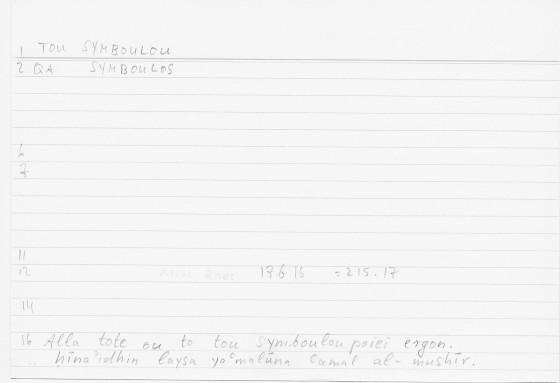 1 TOU SYMBOULOU
2 QA SYMBOULOS
6
7
11
12 Arist Rhet 17.6 16 = 215.17
14
16 Alla tote ou to tou symboulou poiei ergon.
.. ḥīnaʾidhin laysa yaʿmalūna ʿamal al-mushīr.